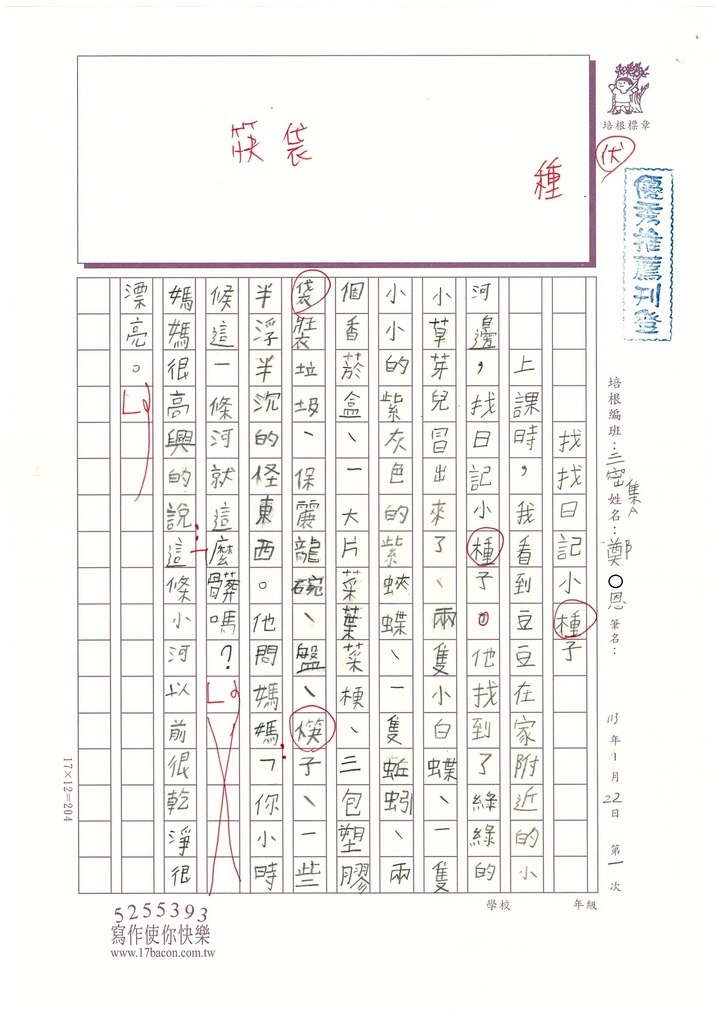 筷袋
種
伏
培根標章
優秀推薦刊登
培根編班：三密集A 姓名：鄭〇恩 筆名：
113年1月22日 第一次
找找日記小種子
上課時，我看到豆豆在家附近的小
河邊，找日記小種子。他找到了綠綠的
小草芽兒冒出來了、兩隻小白蝶、一隻
小小的紫灰色的紫蛺蝶、一隻蚯蚓、兩
個香菸盒、一大片菜葉菜梗、三包塑膠
袋裝垃圾、保麗龍碗、盤、筷子、一些
半浮半沉的怪東西。他問媽媽：「你小時
候這一條河就這麼髒嗎？」
媽媽很高興的說：「這條小河以前很乾淨很
漂亮。」
17×12=204
學校 年級
5255393
寫作使你快樂
www.17bacon.com.tw